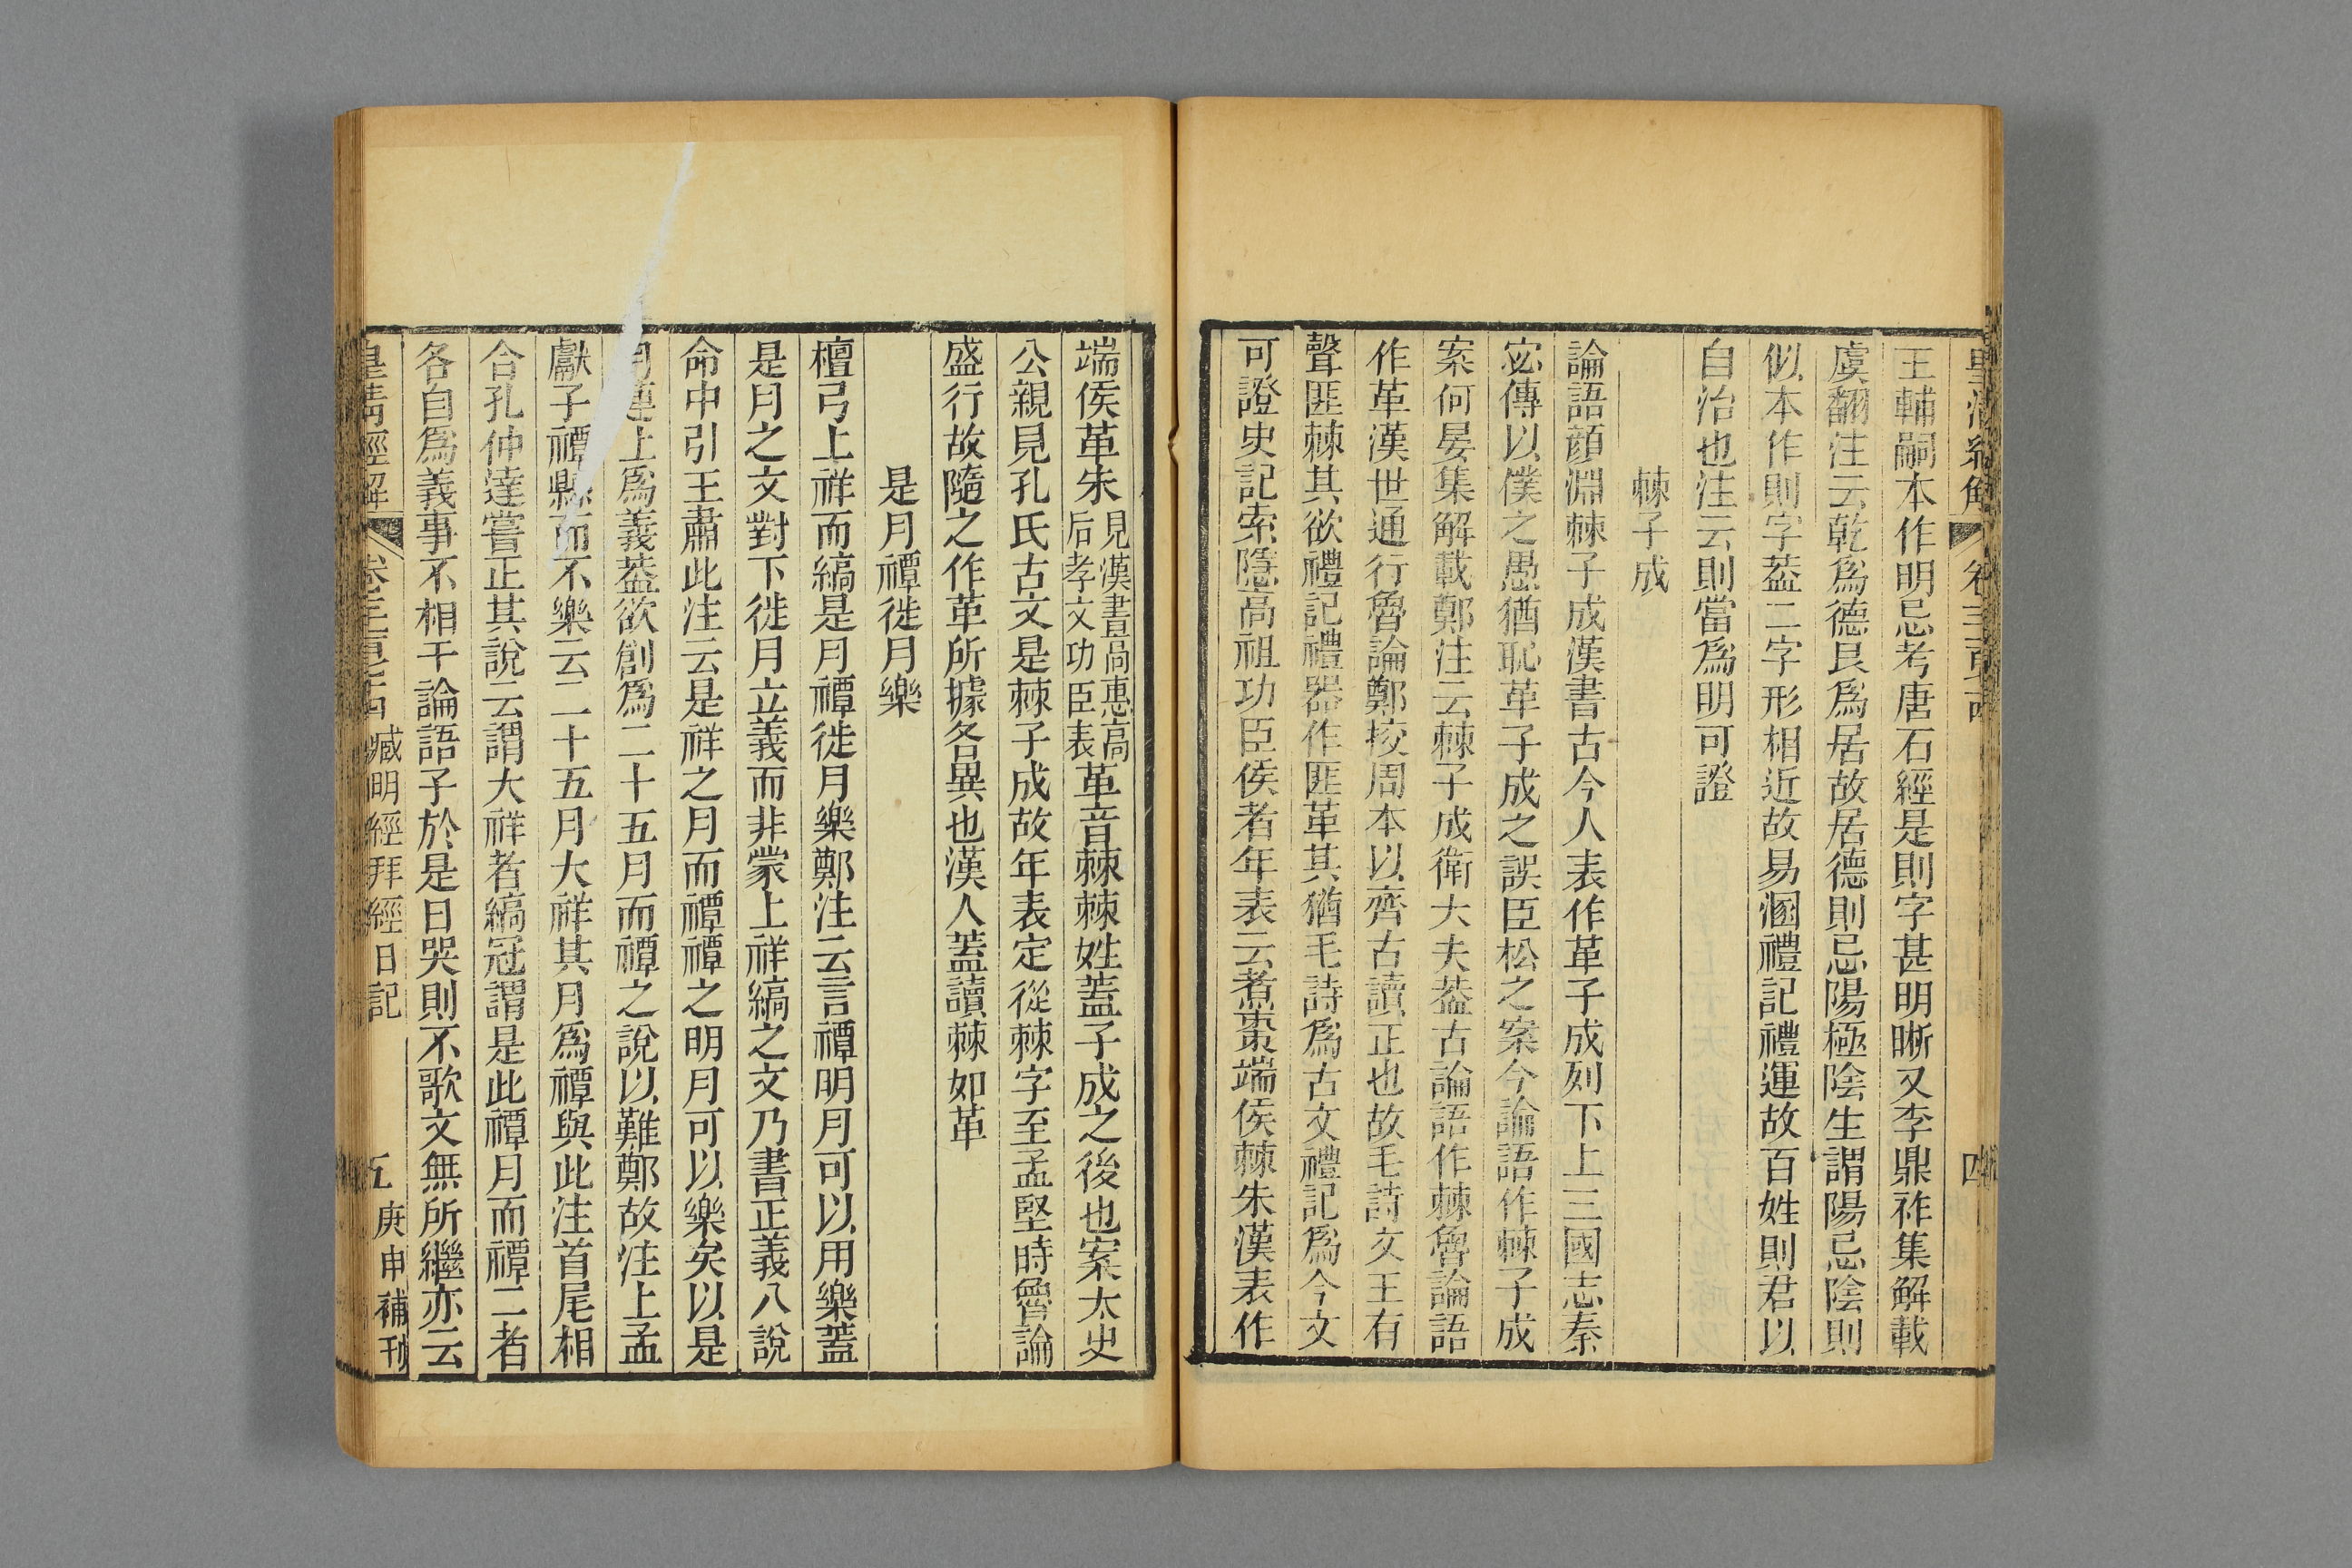 皇清經解 卷三百 四
王輔嗣本作明忌考唐石經是則字甚明晰又李鼎祚集解載
虞翻注云乾爲德艮爲居故居德則忌陽極陰生謂陽忌陰則
似本作則字葢二字形相近故易溷禮記禮運故百姓則君以
自治也注云則當爲明可證
棘子成
論語顔淵棘子成漢書古今人表作革子成列下上三國志秦
宓傳以僕之愚猶恥革子成之誤臣松之案今論語作棘子成
案何晏集解載鄭注云棘子成衛大夫葢古論語作棘魯論語
作革漢世通行魯論鄭挍周本以齊古讀正也故毛詩文王有
聲匪棘其欲禮記禮器作匪革其猶毛詩爲古文禮記爲今文
可證史記索隱高祖功臣侯者年表云煮棗端侯棘朱漢表作
端侯革朱見漢書高惠高后孝文功臣表革音棘棘姓蓋子成之後也案太史
公親見孔氏古文是棘子成故年表定從棘字至孟堅時魯論
盛行故隨之作革所據各異也漢人蓋讀棘如革
是月禫徙月樂
檀弓上祥而縞是月禫徙月樂鄭注云言禫明月可以用樂蓋
是月之文對下徙月立義而非蒙上祥縞之文乃書正義八說
命中引王肅此注云是祥之月而禫禫之明月可以樂矣以是
月連上爲義葢欲創爲二十五月而禫之說以難鄭故注上孟
獻子禫縣而不樂云二十五月大祥其月爲禫與此注首尾相
合孔仲達嘗正其說云謂大祥者縞冠謂是此禫月而禫二者
各自爲義事不相干論語子於是日哭則不歌文無所繼亦云
皇清經解 卷 臧明經拜經日記 五 庚申補刊